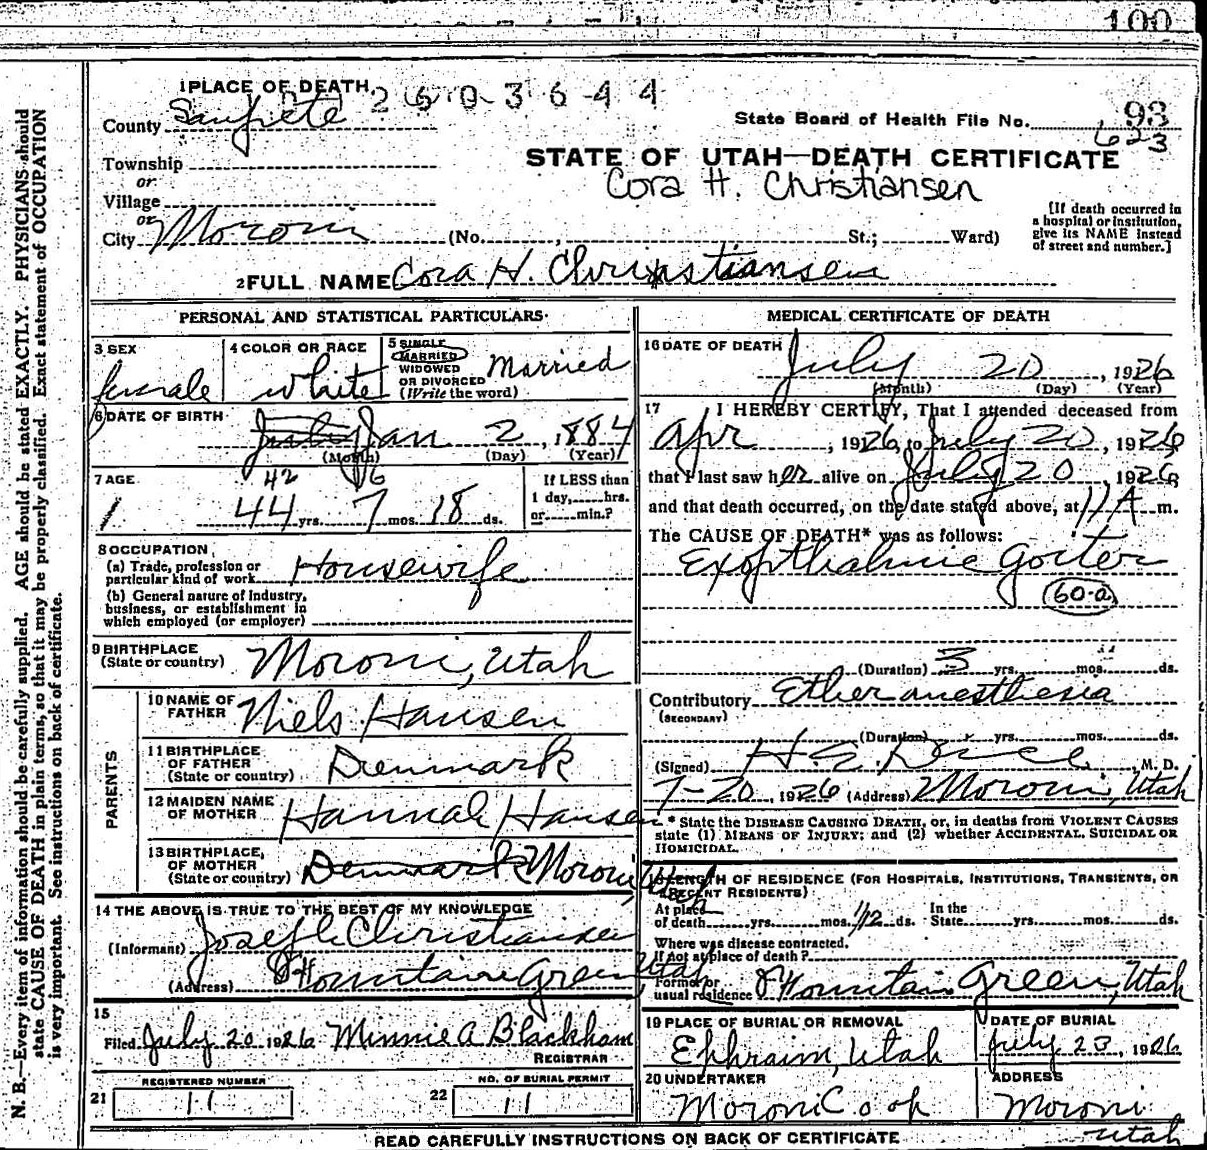 100
1 PLACE OF DEATH
2603644
County Sanpete
State Board of Health File No. 93
623
Township
or
Village
or
City Moroni
STATE OF UTAH—DEATH CERTIFICATE
Cora H. Christiansen
(No. , St.; Ward)
[If death occurred in
a hospital or institution,
give its NAME instead
of street and number.]
2 FULL NAME Cora H. Christiansen
PERSONAL AND STATISTICAL PARTICULARS
3 SEX
female
4 COLOR OR RACE
white
5 SINGLE
MARRIED
WIDOWED
OR DIVORCED
(Write the word)
Married
6 DATE OF BIRTH
July Jan 2, 1884
(Month) (Day) (Year)
7 AGE
42 6
44 yrs. 7 mos. 18 ds.
If LESS than
1 day, hrs.
or min.?
8 OCCUPATION
(a) Trade, profession or
particular kind of work Housewife
(b) General nature of industry,
business, or establishment in
which employed (or employer)
9 BIRTHPLACE
(State or country) Moroni, Utah
PARENTS
10 NAME OF
FATHER Niels Hansen
11 BIRTHPLACE
OF FATHER
(State or country) Denmark
12 MAIDEN NAME
OF MOTHER Hannah Hansen
13 BIRTHPLACE
OF MOTHER
(State or country) Denmark Moroni, Utah
14 THE ABOVE IS TRUE TO THE BEST OF MY KNOWLEDGE
(Informant) Joseph Christiansen
(Address) Fountain Green Utah
15
Filed July 20 1926 Minnie A Blackham
REGISTRAR
21 REGISTERED NUMBER
11
22 NO. OF BURIAL PERMIT
11
MEDICAL CERTIFICATE OF DEATH
16 DATE OF DEATH July 20, 1926
(Month) (Day) (Year)
17 I HEREBY CERTIFY, That I attended deceased from
Apr , 1926, to July 20, 1926,
that I last saw her alive on July 20, 1926,
and that death occurred, on the date stated above, at 11 A m.
The CAUSE OF DEATH* was as follows:
Exopthalmic Goiter
60-a
(Duration) 3 yrs. mos. ds.
Contributory Ether anesthesia
(SECONDARY)
(Duration) yrs. mos. ds.
(Signed) , M. D.
7-20, 1926 (Address) Moroni, Utah
* State the DISEASE CAUSING DEATH, or, in deaths from VIOLENT CAUSES
state (1) MEANS OF INJURY; and (2) whether ACCIDENTAL, SUICIDAL OR
HOMICIDAL.
18 LENGTH OF RESIDENCE (FOR HOSPITALS, INSTITUTIONS, TRANSIENTS, OR
RECENT RESIDENTS)
At place
of death yrs. mos. 1/12 ds. In the
State yrs. mos. ds.
Where was disease contracted,
if not at place of death?
Former or
usual residence Fountain Green, Utah
19 PLACE OF BURIAL OR REMOVAL
Ephraim, Utah
DATE OF BURIAL
July 23, 1926
20 UNDERTAKER
Moroni Co op
ADDRESS
Moroni
Utah
READ CAREFULLY INSTRUCTIONS ON BACK OF CERTIFICATE
N. B.—Every item of information should be carefully supplied. AGE should be stated EXACTLY. PHYSICIANS should
state CAUSE OF DEATH in plain terms, so that it may be properly classified. Exact statement of OCCUPATION
is very important. See instructions on back of certificate.